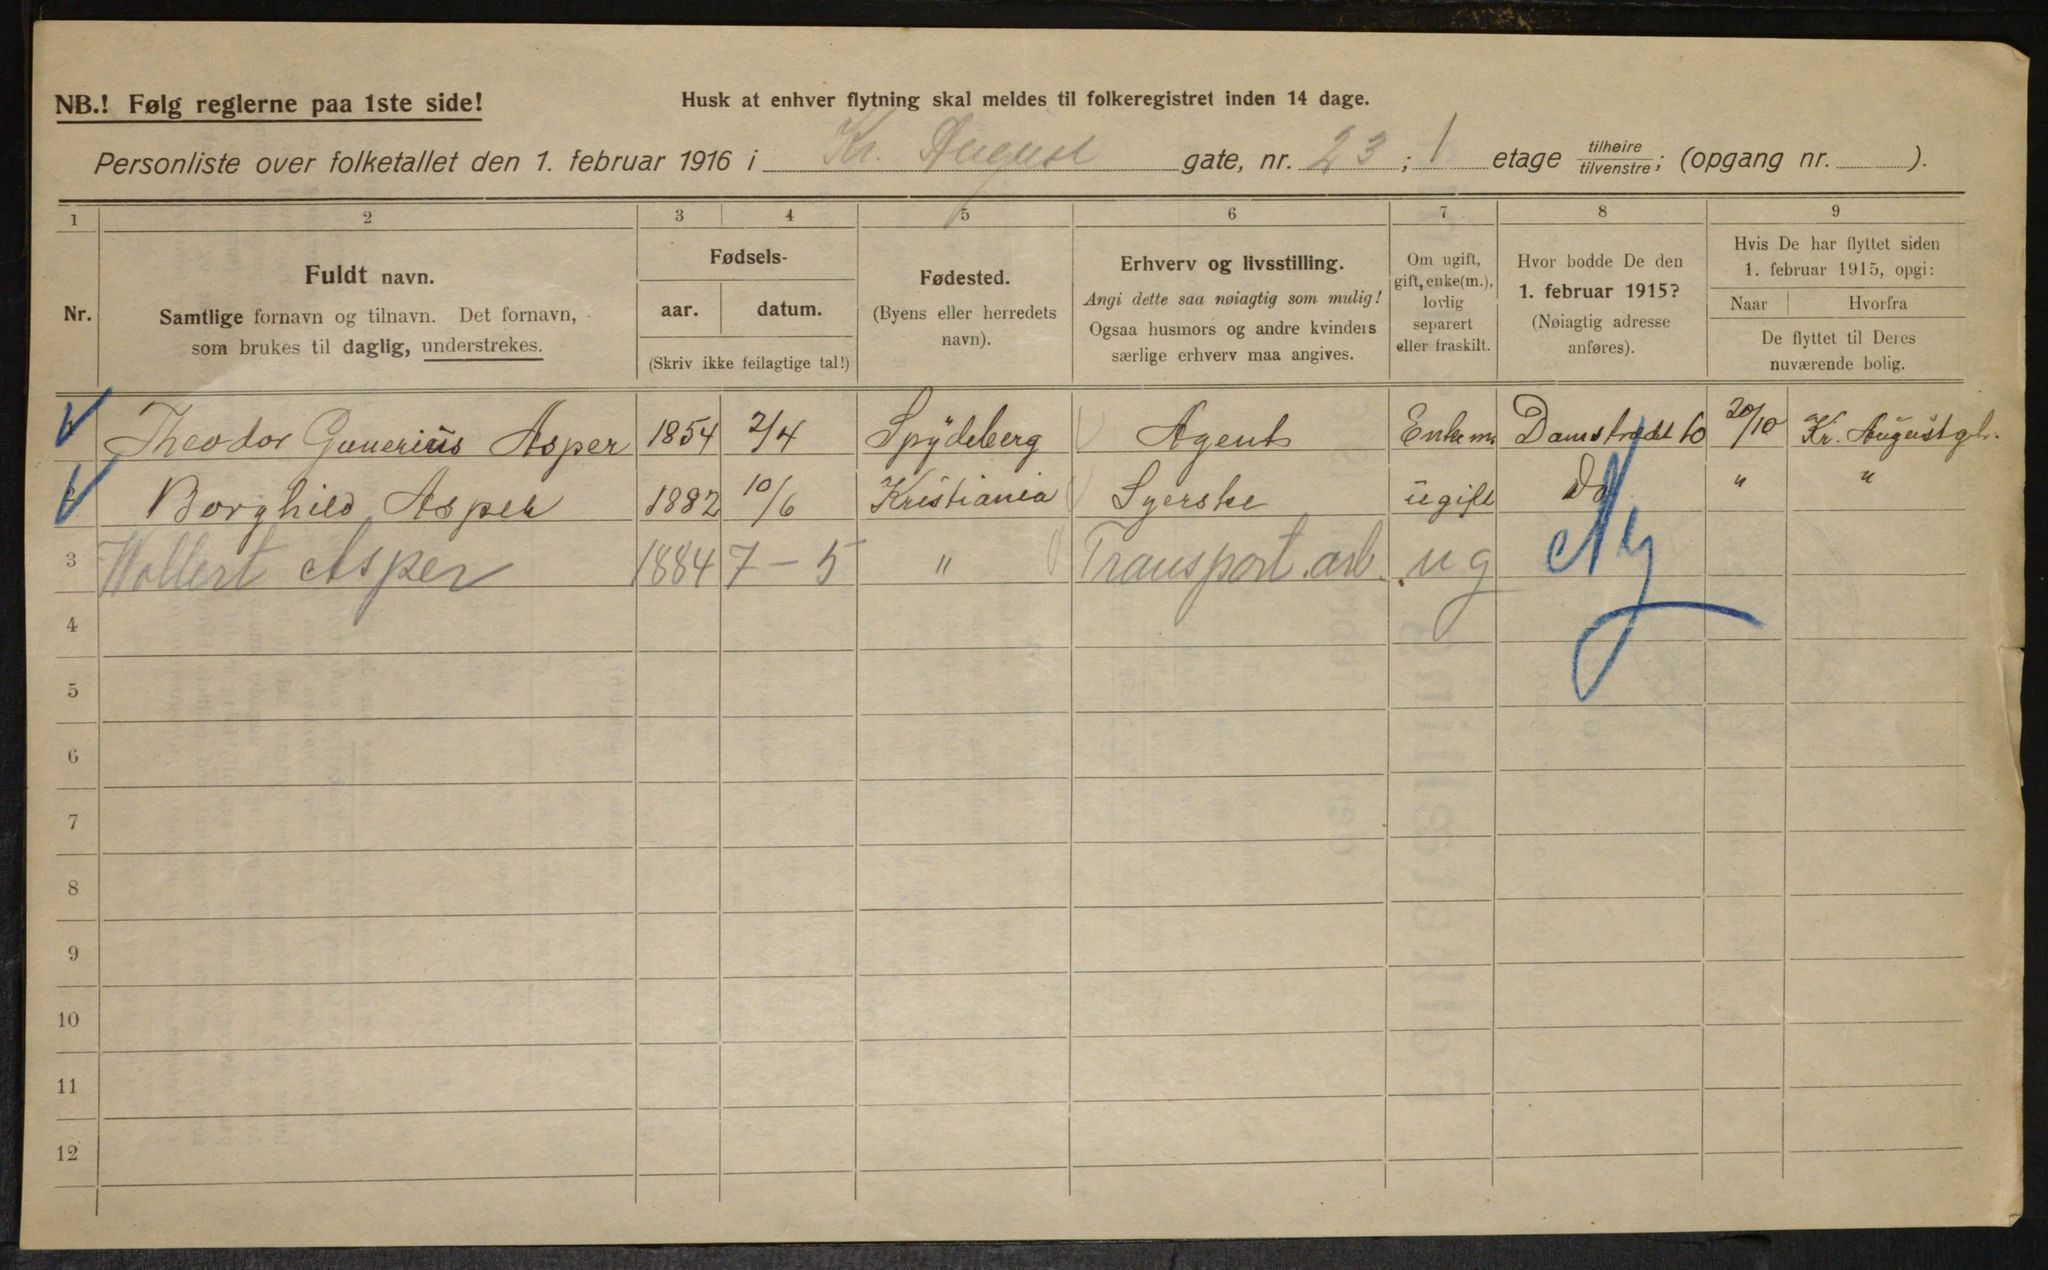 NB.! Følg reglerne paa 1ste side!
Husk at enhver flytning skal meldes til folkeregistret inden 14 dage.
Personliste over folketallet den 1. februar 1916 i Kr. August gate, nr. 23 ; 1 etage tilhøire/tilvenstre; (opgang nr. ).
1 2 3 4 5 6 7 8 9
Nr.
Fuldt navn.
Samtlige fornavn og tilnavn. Det fornavn,
som brukes til daglig, understrekes.
Fødsels-
aar. datum.
(Skriv ikke feilagtige tal!)
Fødested.
(Byens eller herredets
navn).
Erhverv og livsstilling.
Angi dette saa nøiagtig som mulig!
Ogsaa husmors og andre kvinders
særlige erhverv maa angives.
Om ugift,
gift, enke(m.),
lovlig
separert
eller fraskilt.
Hvor bodde De den
1. februar 1915?
(Nøiagtig adresse
anføres).
Hvis De har flyttet siden
1. februar 1915, opgi:
Naar Hvorfra
De flyttet til Deres
nuværende bolig.
Theodor Gunerius Asper 1854 2/4 Spydeberg Agent Enkem. Damstrædet 10 20/10 Kr. Augustgt.
Borghild Asper 1882 10/6 Kristiania Syerske ugift Do. " "
3 Wollert Asper 1884 7-5 " Transport.arb. ug Ny
4
5
6
7
8
9
10
11
12